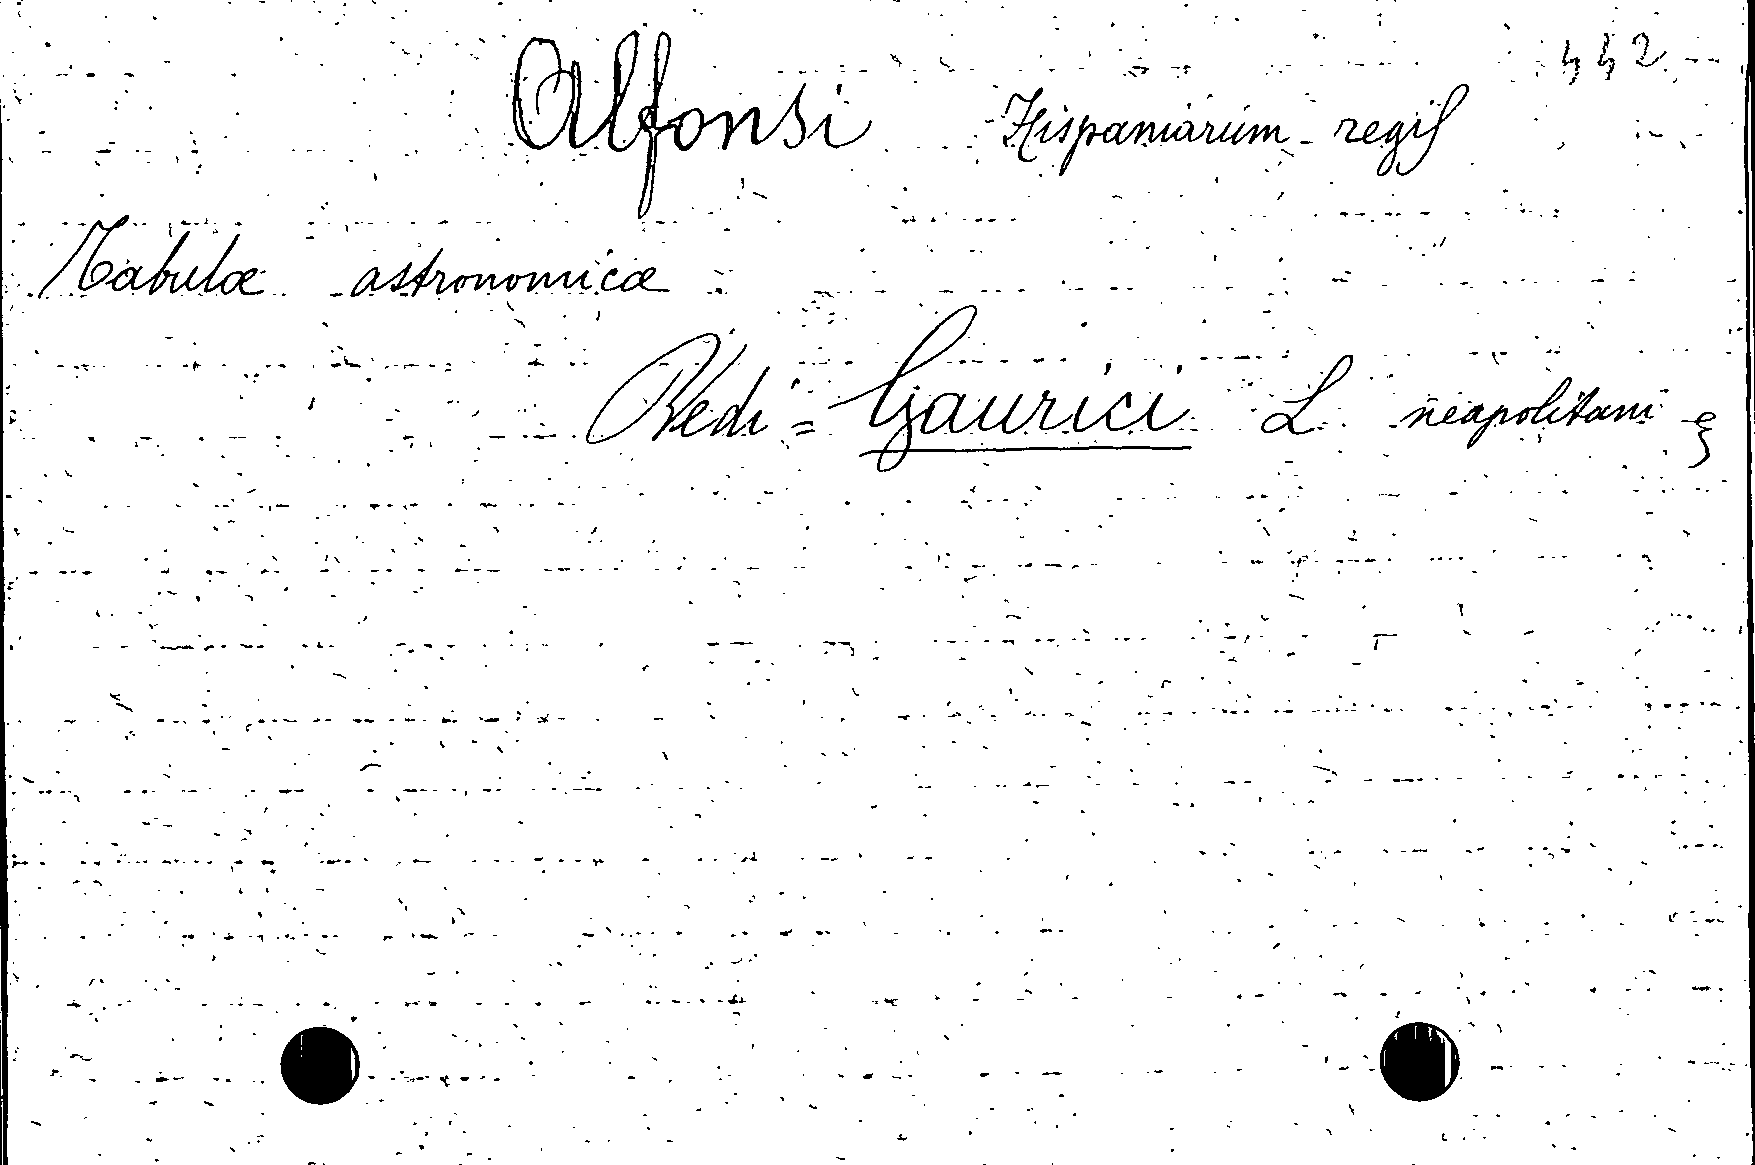 442
Alfonsi Hispaniarum regis
Tabulæ astronomicæ
Vedi = Gaurici L neapolitani